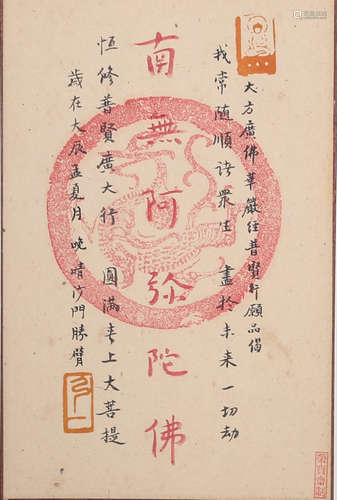 大方廣佛華嚴經普賢行願品偈
我常隨順諸眾生 盡於未来一切劫
南無阿弥陀佛
恒修普賢廣大行 圓滿无上大菩提
歲在大辰孟夏月 晚晴沙門勝臂